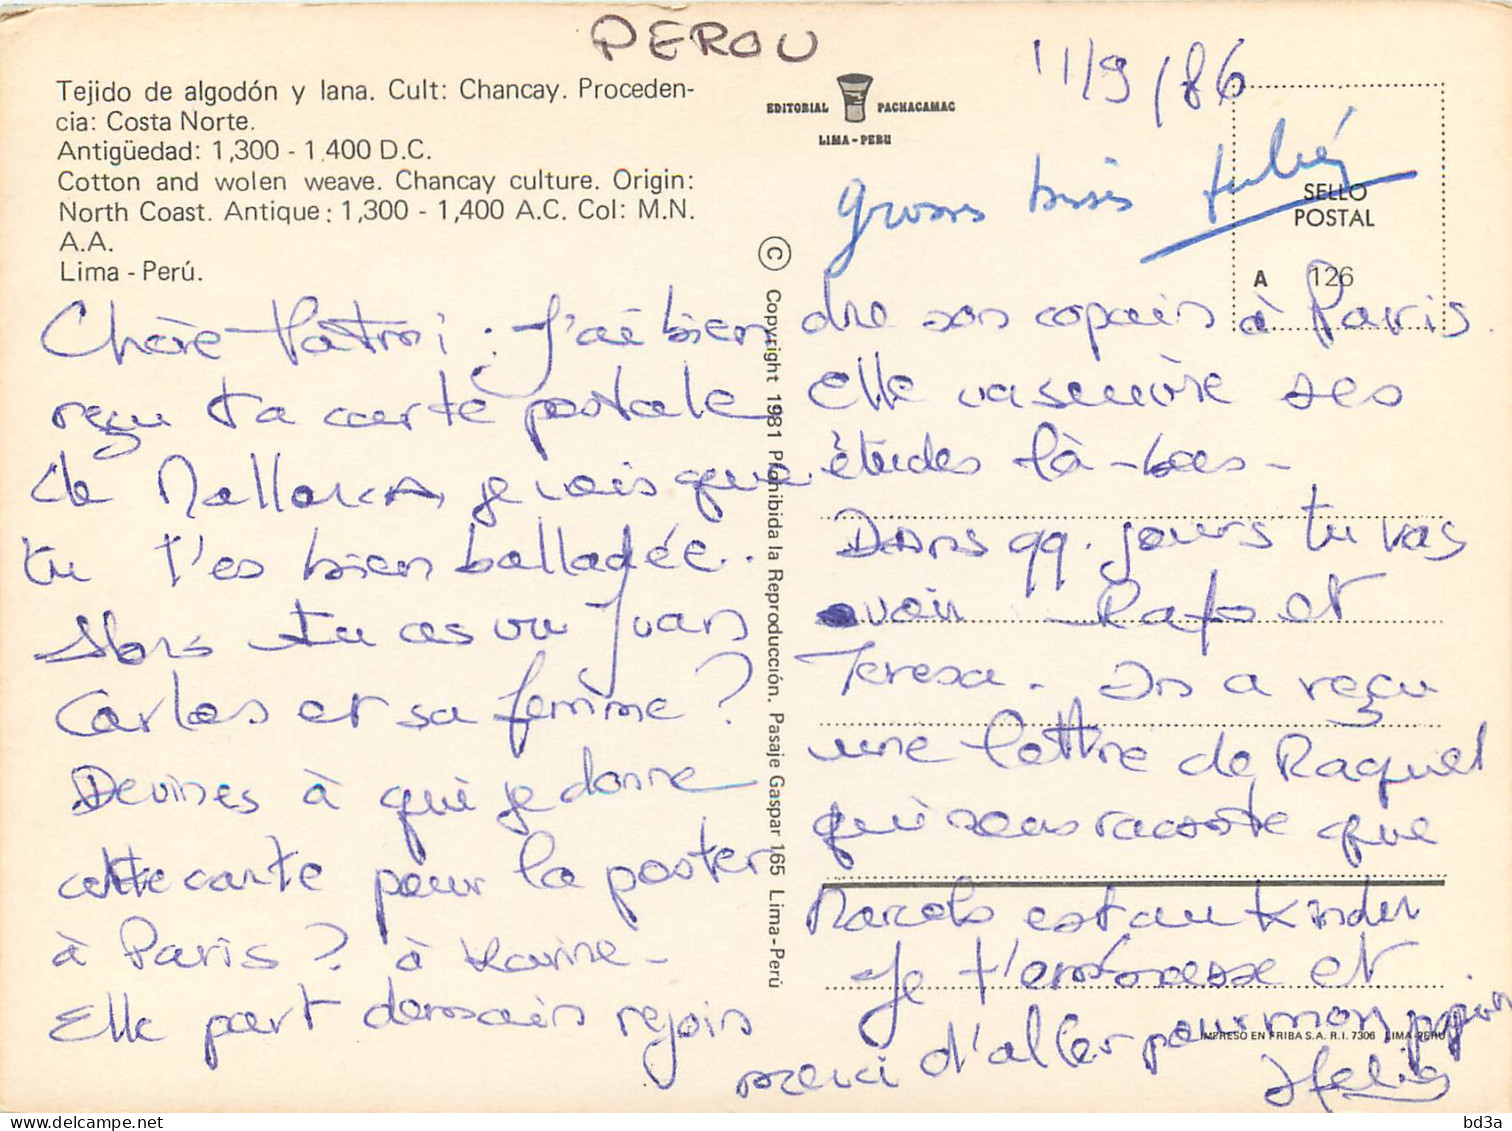 PEROU
11/9/86
Tejido de algodón y lana. Cult: Chancay. Proceden-
cia: Costa Norte.
Antigüedad: 1,300 - 1.400 D.C.
Cotton and wolen weave. Chancay culture. Origin:
North Coast. Antique: 1,300 - 1,400 A.C. Col: M.N.
A.A.
Lima - Perú.
EDITORIAL PACHACAMAC
LIMA - PERU
SELLO
POSTAL
A 126
Chère Patmi : J'ai bien
reçu ta carte postale
de Mallorca, je vois que
tu t'es bien balladée.
Alors tu as vu Juan
Carlos et sa femme ?
Devines à qui je donne
cette carte pour la poster
à Paris ? à Karine -
Elle part demain rejoin
© Copyright 1981 Prohibida la Reproducción. Pasaje Gaspar 165 Lima-Perú
dre son copain à Paris.
Elle va suivre ses
études là-bas -
Dans qq. jours tu vas
avoir Rafo et
Teresa. On a reçu
une lettre de Raquel
qui nous raconte que
Marcelo est au Kinder
Je t'embrasse et
merci d'aller pour mon papin
IMPRESO EN FRIBA S.A. R.I. 7306 LIMA-PERU
gross bisis
bd3a